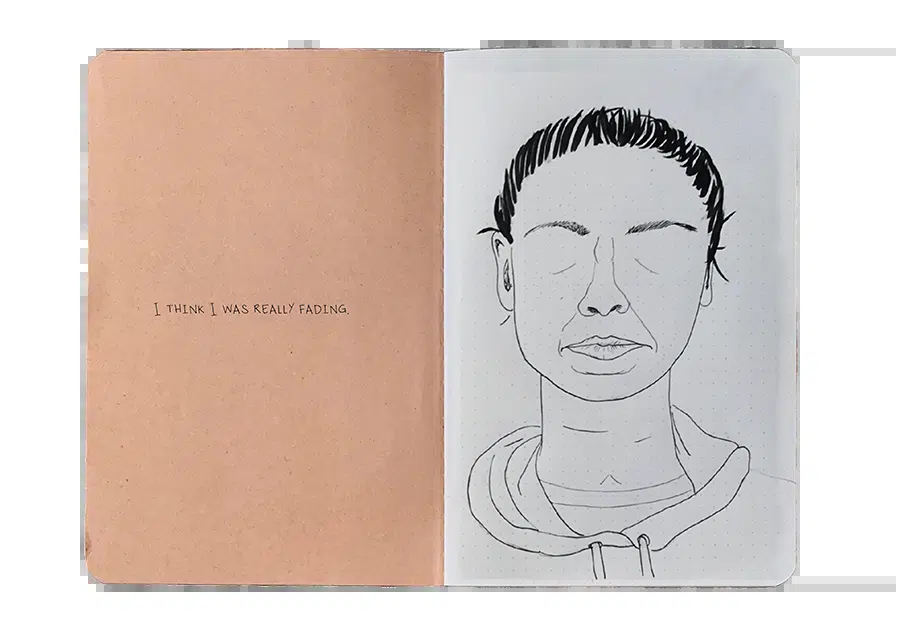 I THINK I WAS REALLY FADING.